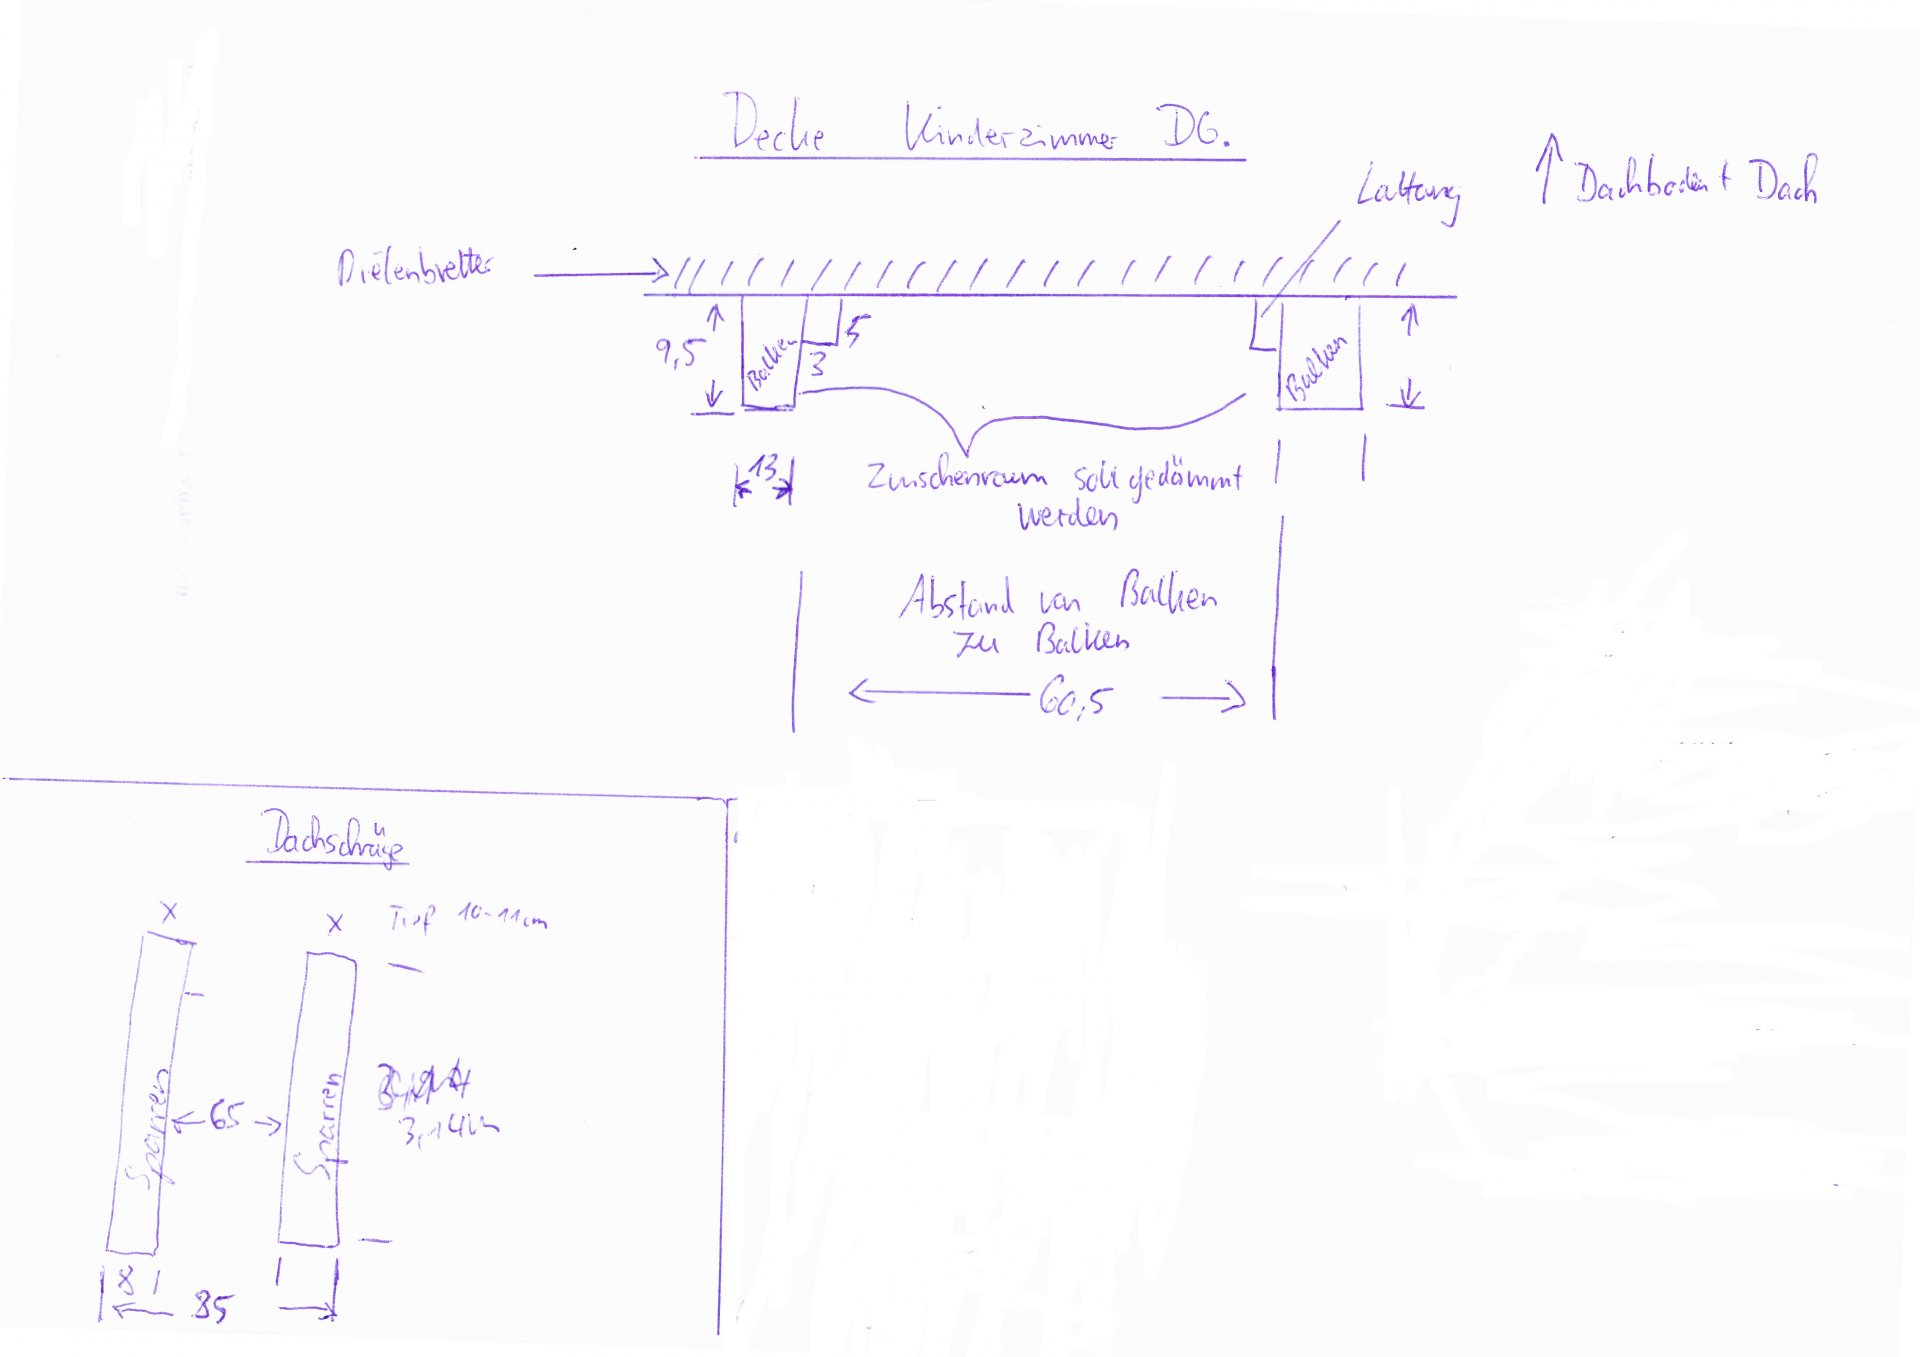 Decke Kinderzimmer DG.
Lattung
↑ Dachboden + Dach
Dielenbretter
9,5
Balken
5
3
Balken
13
Zwischenraum soll gedämmt
werden
Abstand von Balken
zu Balken
60,5
Dachschräge
x
x
Tief 10-11cm
Sparren
65
Sparren
3,14m
8
85